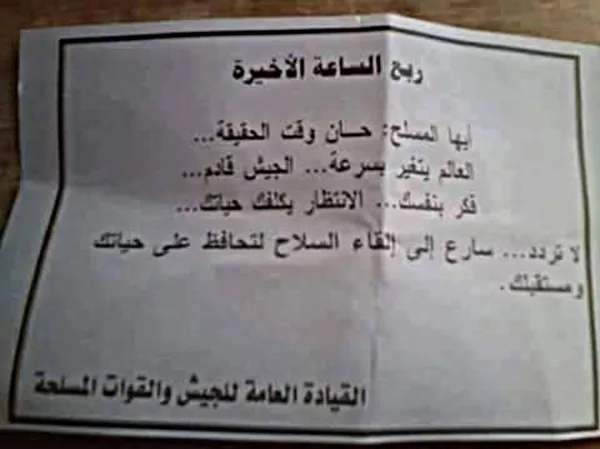 ربع الساعة الأخيرة
أيها المسلح: حان وقت الحقيقة...
العالم يتغير بسرعة... الجيش قادم...
فكر بنفسك... الانتظار يكلفك حياتك...
لا تردد... سارع إلى إلقاء السلاح لتحافظ على حياتك
ومستقبلك.
القيادة العامة للجيش والقوات المسلحة